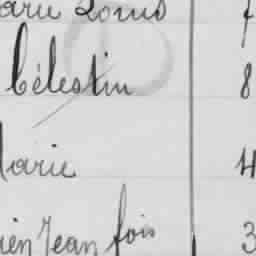 arie Louis 7
Célestin 8
Marie 4
ien Jean fois 3